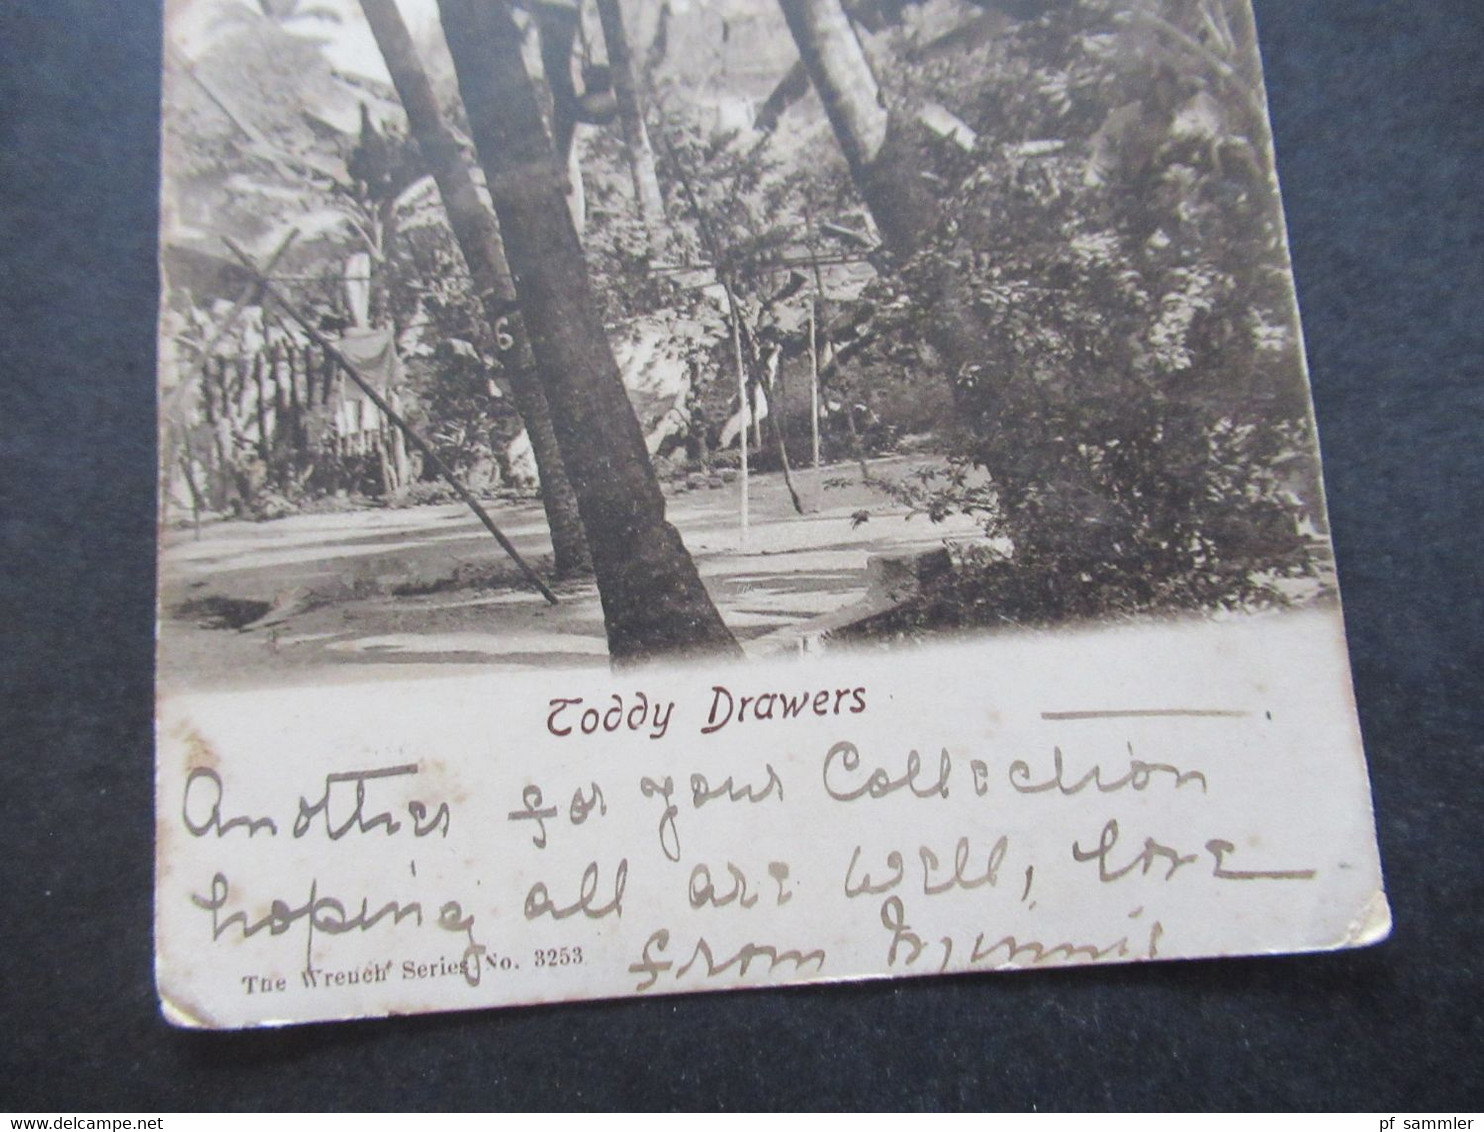 6
Toddy Drawers
Another for your Collection
hoping all are well, love
from Minnie
The Wrench Series No. 3253
pf_sammler